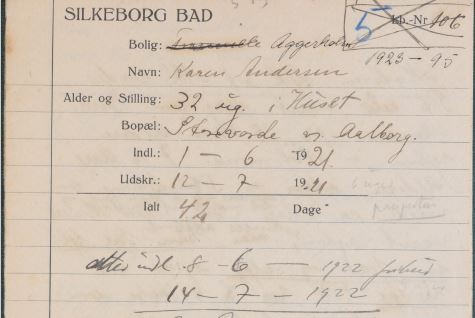 SILKEBORG BAD
5 Lb.-Nr 106
Bolig: Aggerholm
1923 - 95
Navn: Karen Andersen
Alder og Stilling: 32 ug. i Huset
Bopæl: Storvorde v. Aalborg.
Indl.: 1 - 6 1921
Udskr.: 12 - 7 1921
Ialt 42 Dage
atter indl. 8 - 6 - 1922
14 - 7 - 1922